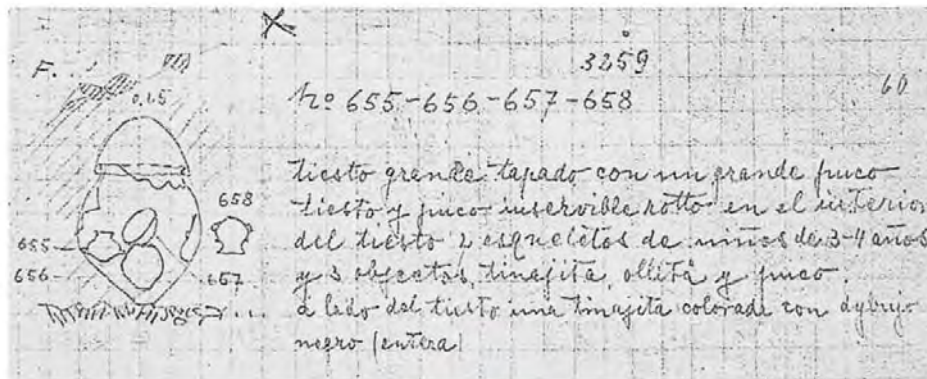 3259
60
F...
0,65
nº 655-656-657-658
tiesto grande tapado con un grande puco
tiesto y puco inservible rotto en el interior
del tiesto 2 esqueletos de niños de 3-4 años
y 3 objectos, tinajita, ollita y puco.
a lado del tiesto una tinajita colorada con dybujo
negro (entera)
658
655
656
657